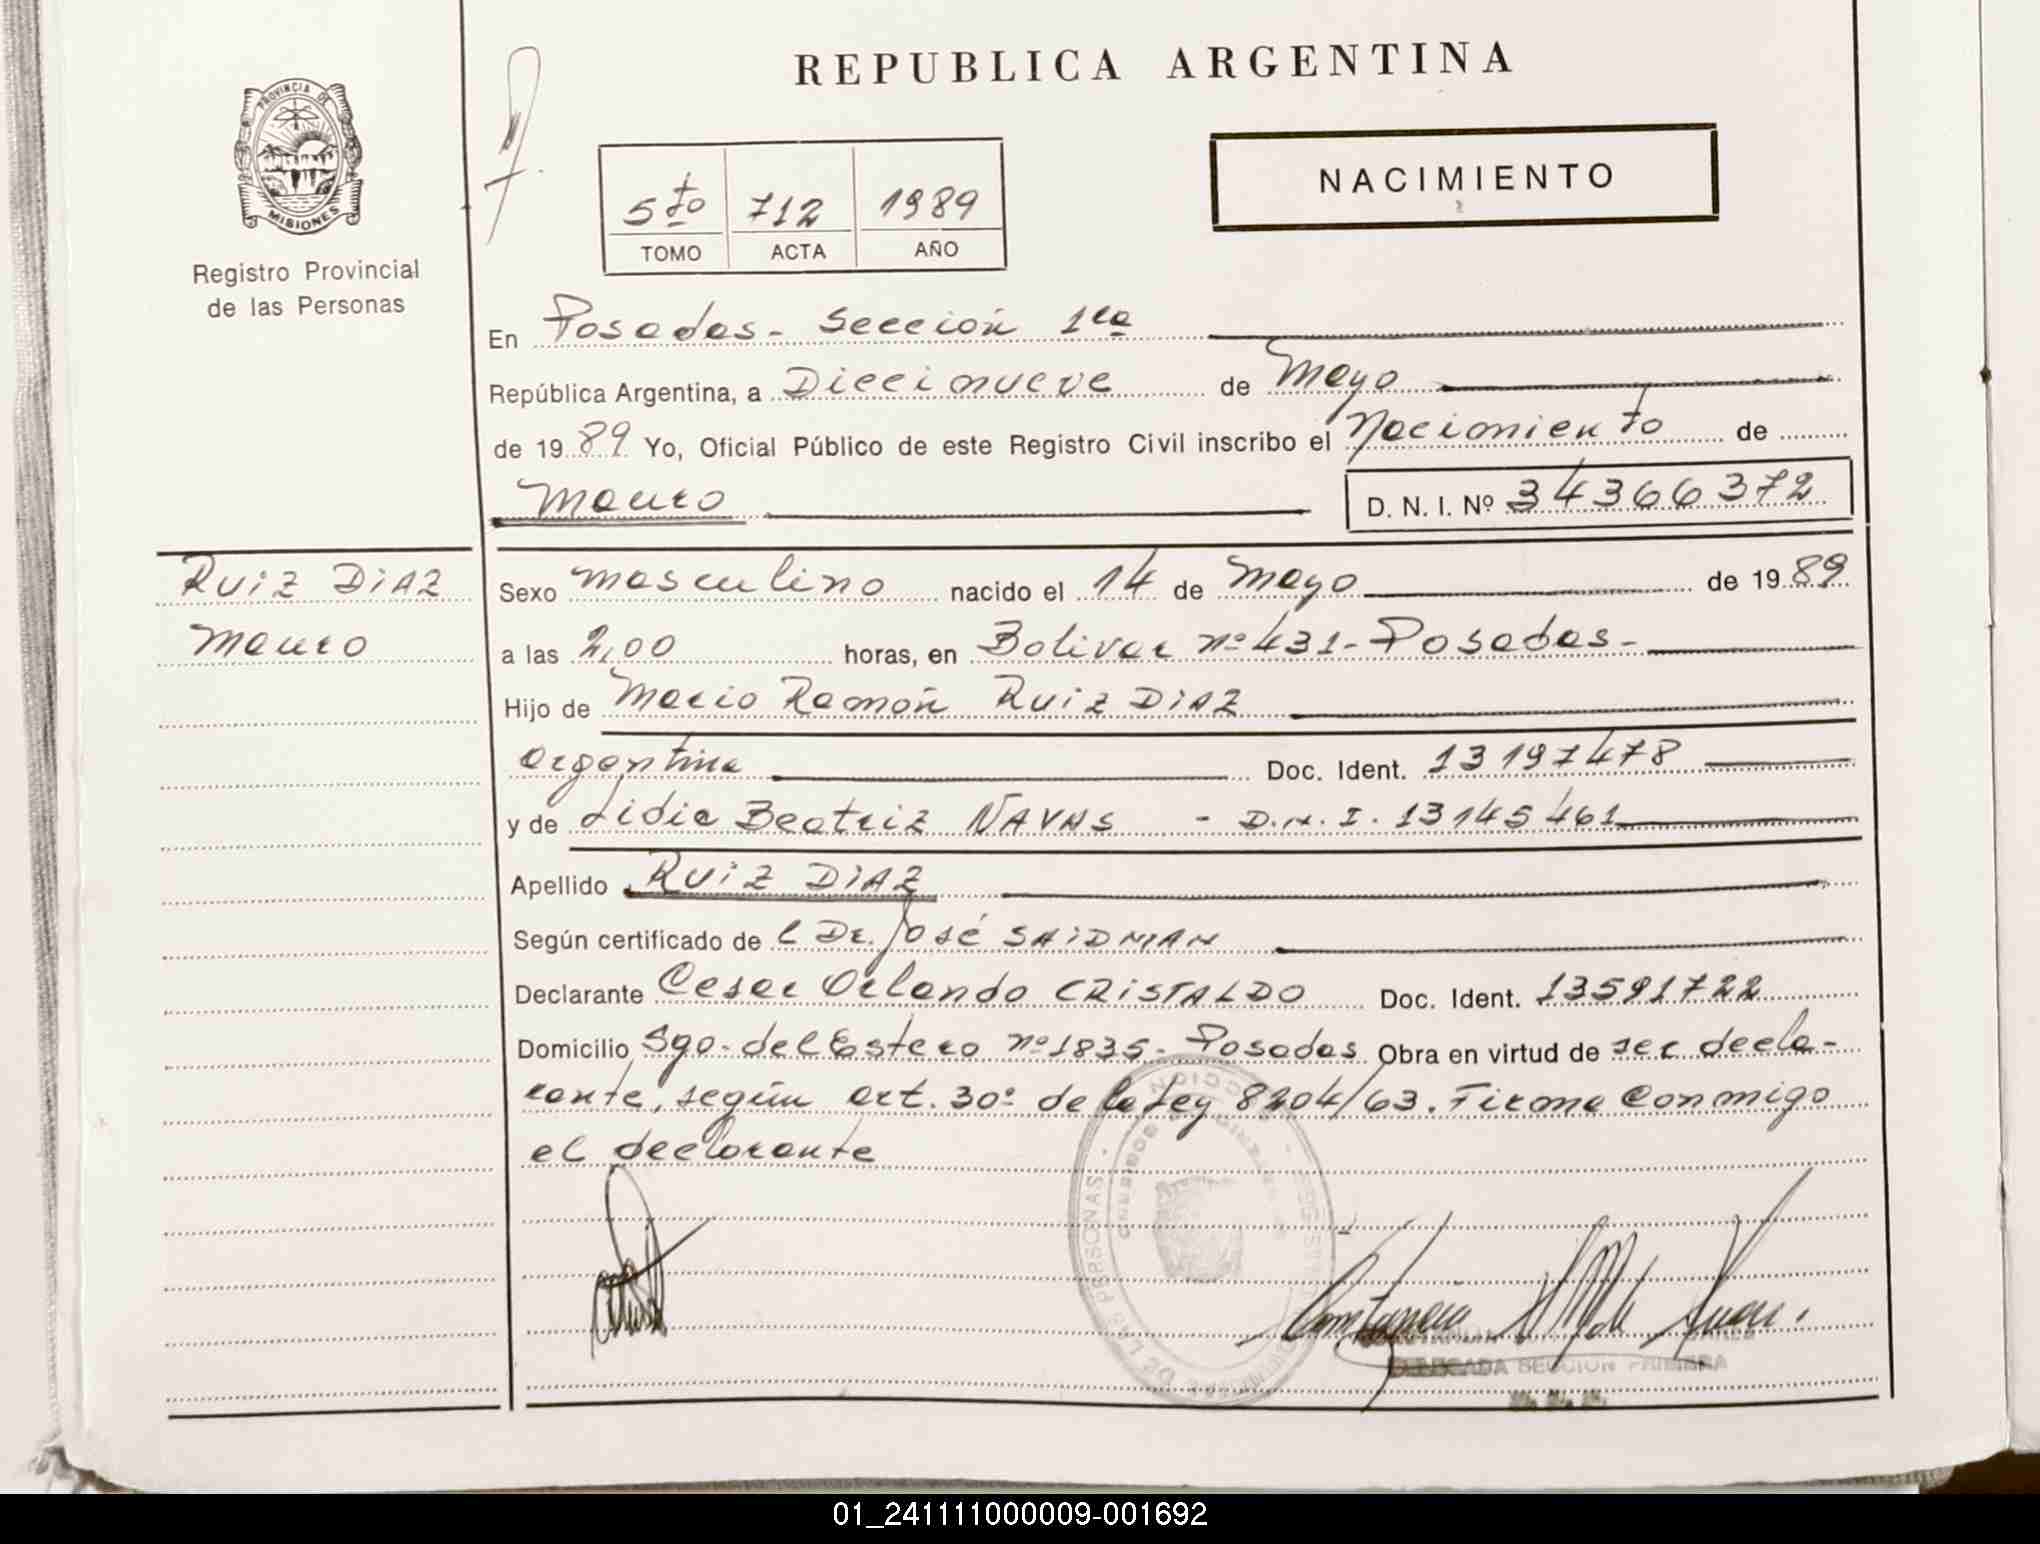 REPUBLICA ARGENTINA
PROVINCIA DE
MISIONES
Registro Provincial
de las Personas
NACIMIENTO
5to 712 1989
TOMO ACTA AÑO
En Posadas - Sección 1ra
República Argentina, a Diecinueve de Mayo
de 1989 Yo, Oficial Público de este Registro Civil inscribo el Nacimiento de
Mauro D. N. I. Nº 34366372
RUIZ DIAZ
Mauro
Sexo masculino nacido el 14 de Mayo de 1989
a las 2,00 horas, en Bolivar nº 431 - Posadas -
Hijo de Mario Ramón RUIZ DIAZ
Argentina Doc. Ident. 13197478
y de Lidia Beatriz NAVAS - D.N.I. 13145461
Apellido RUIZ DIAZ
Según certificado de l Dr. José SAIDMAN
Declarante Cesar Orlando CRISTALDO Doc. Ident. 13591722
Domicilio Sgo. del Estero nº 1835 - Posadas Obra en virtud de ser decla-
rante, según art. 30º de la Ley 8204/63. Firma Conmigo
el declarante
DE LAS PERSONAS
DELEGADA SECCION PRIMERA
01_241111000009-001692